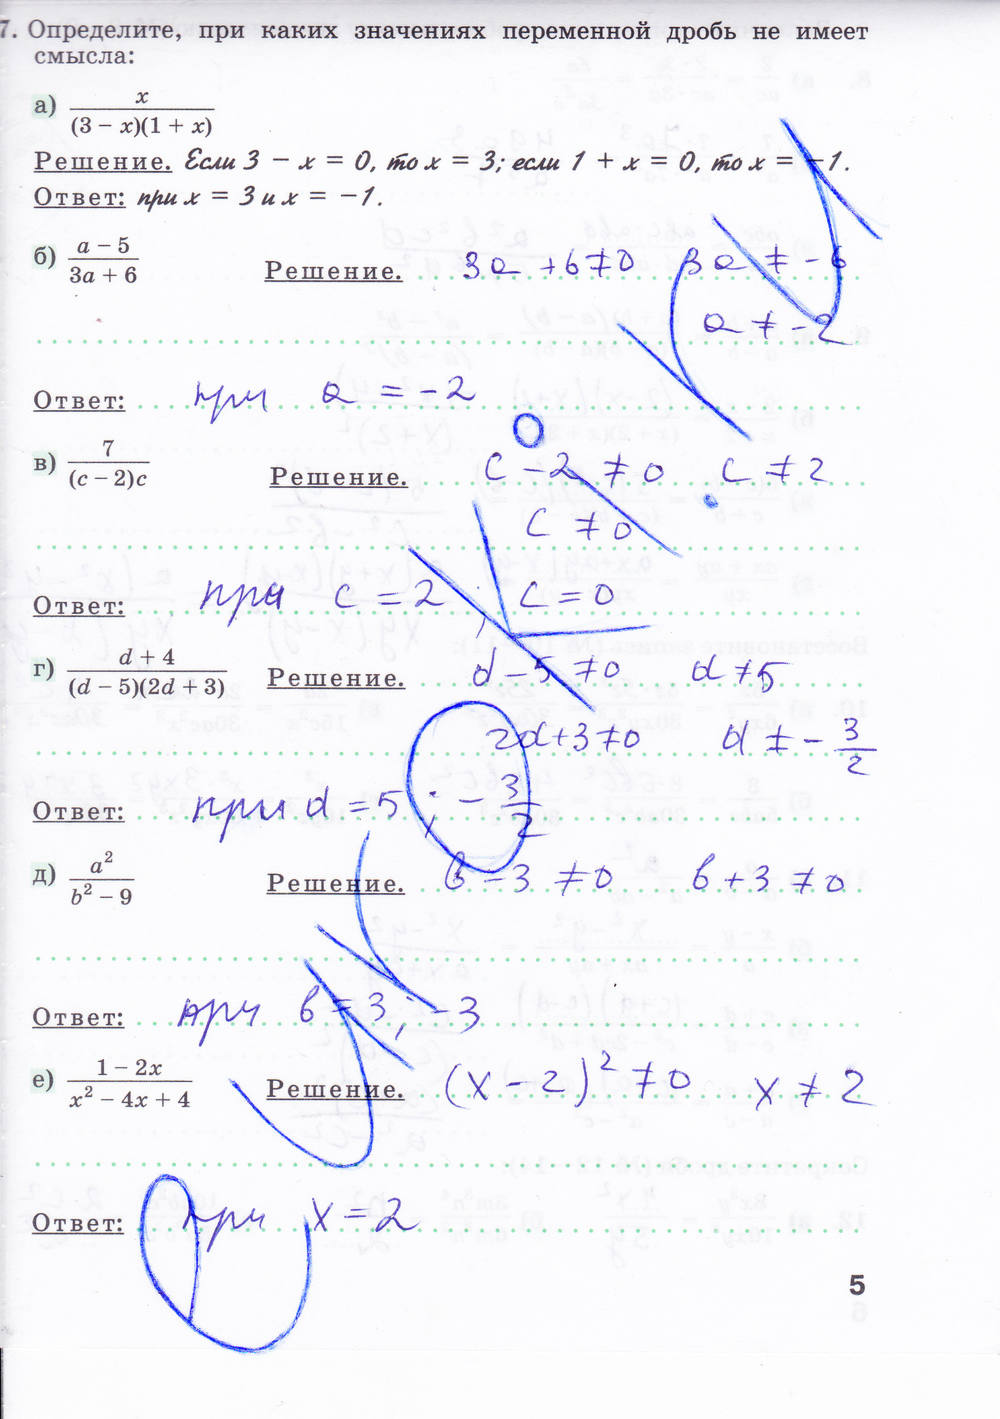 7. Определите, при каких значениях переменной дробь не имеет
смысла:
а) x / (3 − x)(1 + x)
Решение. Если 3 − x = 0, то x = 3; если 1 + x = 0, то x = −1.
Ответ: при x = 3 и x = −1.
б) a − 5 / 3a + 6 Решение. 3a + 6 ≠ 0 3a ≠ −6
a ≠ −2
Ответ: при a = −2
в) 7 / (c − 2)c Решение. c − 2 ≠ 0 c ≠ 2
c ≠ 0
Ответ: при c = 2 ; c = 0
г) d + 4 / (d − 5)(2d + 3) Решение. d − 5 ≠ 0 d ≠ 5
2d + 3 ≠ 0 d ≠ − 3/2
Ответ: при d = 5 ; − 3/2
д) a² / b² − 9 Решение. b − 3 ≠ 0 b + 3 ≠ 0
Ответ: при b = 3 ; −3
е) 1 − 2x / x² − 4x + 4 Решение. (x − 2)² ≠ 0 x ≠ 2
Ответ: при x = 2
5